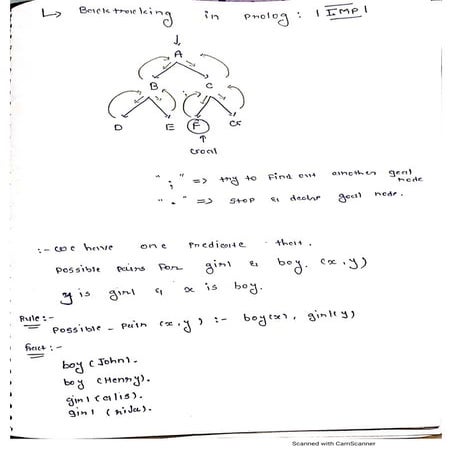 ↳ Backtracking in Prolog : | IMP |
A
B C
D E F G
Goal
" ; " => try to find out another goal node
" . " => stop & declar goal node.
:- we have one Predicate that.
Possible pairs for girl & boy. (x,y)
y is girl & x is boy.
Rule:-
Possible-pair (x,y) :- boy(x), girl(y)
Fact :-
boy (John).
boy (Henry).
girl (alis).
girl (rija).
Scanned with CamScanner